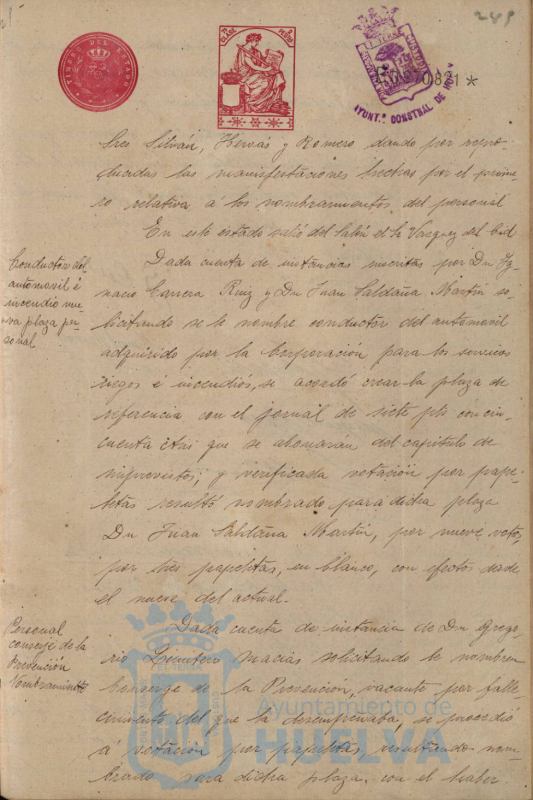 249
TIMBRE DEL ESTADO
AYUNT.º CONSTNAL DE HUELVA
Sres Silván, Hervás y Romero dando por repro-
ducidas las manifestaciones hechas por el prime-
ro relativa a los nombramientos del personal
En este estado salió del Salón el Sr Vazquez del Cid
Conductor del
automovil é
incendio nue-
va plaza per-
sonal
Dada cuenta de instancias suscritas por Dn Ig-
nacio Carrera Ruiz y Dn Juan Saldaña Martín so-
licitando se le nombre conductor del automovil
adquirido por la Corporación para los servicios
riegos é incendiós, se acordó crear la plaza de
referencia con el jornal de siete pts con cin-
cuenta cts que se abonarán del capitulo de
imprevistos; y verificada votación por pape-
letas resultó nombrado para dicha plaza
Dn Juan Saldaña Martín, por nueve votos,
por tres papeletas, en blanco, con efectos desde
el nueve del actual.
Personal
conserje de la
Prevención
Nombramiento
Dada cuenta de instancia de Dn Grego-
rio Quintero Macías solicitando le nombren
Conserge de la Prevención, vacante por falle-
cimiento del que la desempeñaba, se procedió
á votación por papeletas, resultando nom-
brado para dicha plaza, con el haber
Ayuntamiento de
HUELVA